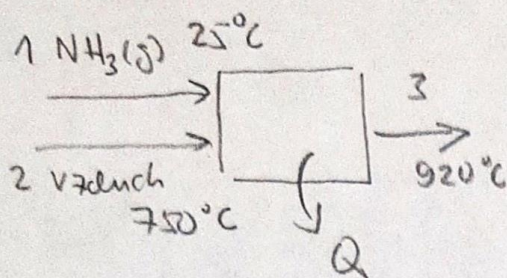 1 NH₃(g) 25°C
3
2 vzduch
750°C
920°C
Q